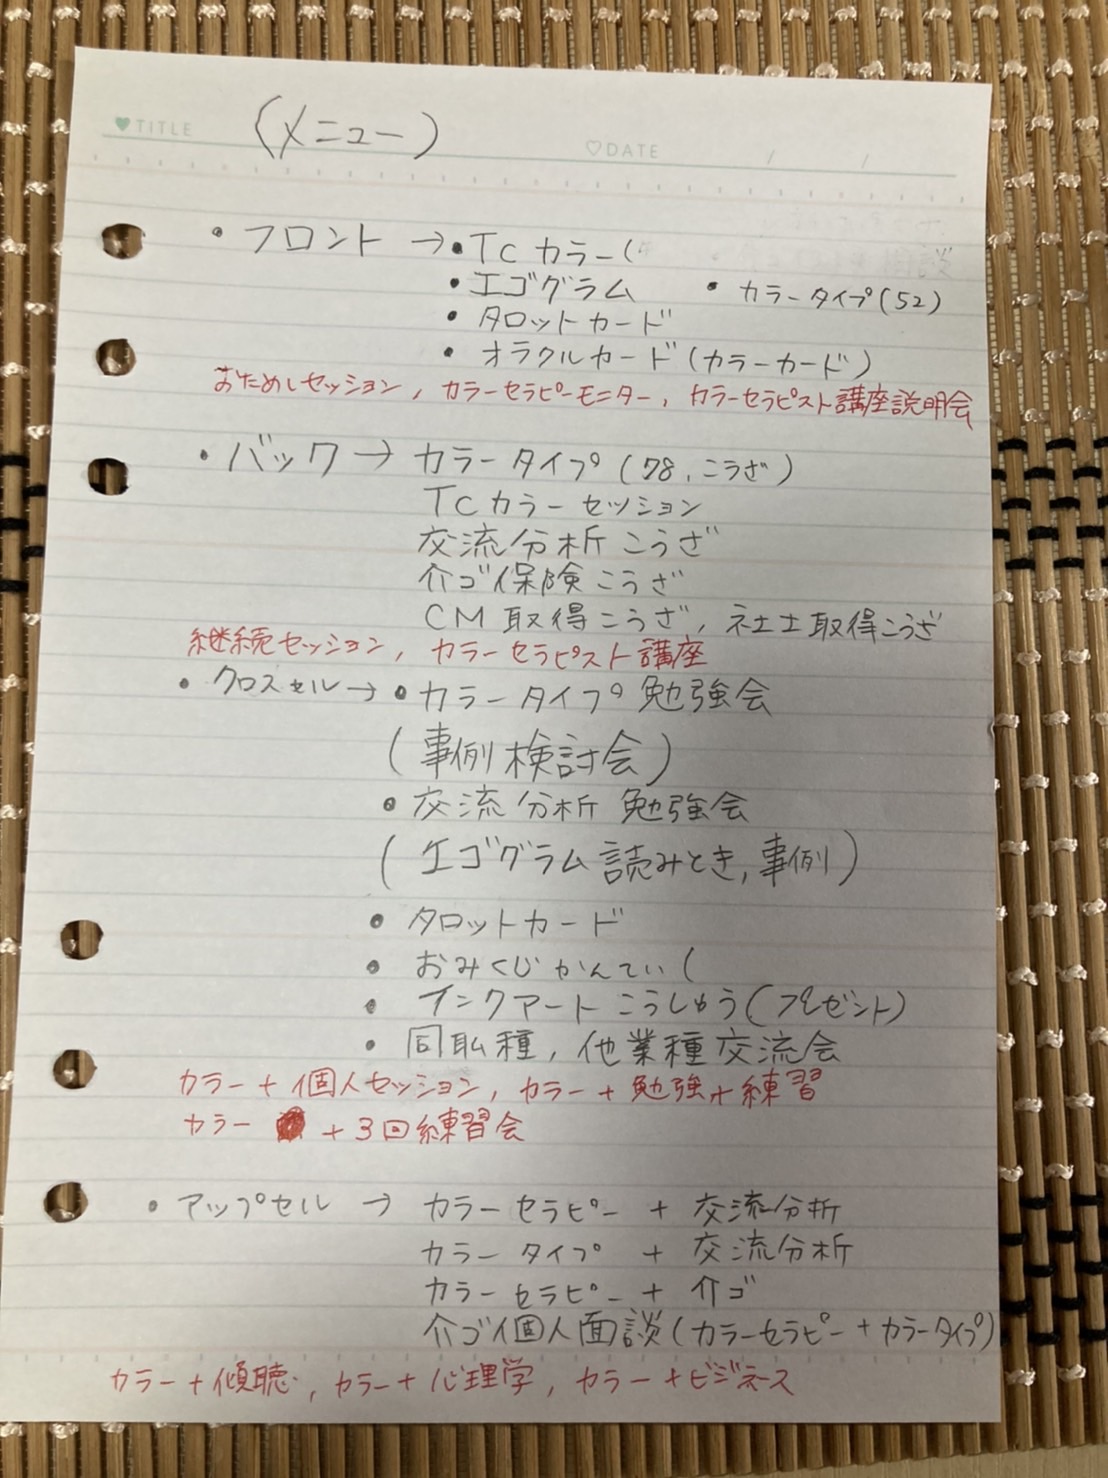 ♥TITLE (メニュー) ♡DATE / /
・フロント →・TCカラー(
・エゴグラム ・カラータイプ(52)
・タロットカード
・オラクルカード(カラーカード)
おためしセッション, カラーセラピーモニター, カラーセラピスト講座説明会
・バック→ カラータイプ(78, こうざ)
TCカラーセッション
交流分析こうざ
介ゴ保険こうざ
CM取得こうざ, 社士取得こうざ
継続セッション, カラーセラピスト講座
・クロスセル→・カラータイプ勉強会
(事例検討会)
・交流分析勉強会
(エゴグラム読みとき, 事例)
・タロットカード
・おみくじかんてい(
・インクアートこうしゅう(プレゼント)
・同職種, 他業種交流会
カラー+個人セッション, カラー+勉強+練習
カラー +3回練習会
・アップセル → カラーセラピー + 交流分析
カラータイプ + 交流分析
カラーセラピー + 介ゴ
介ゴ個人面談(カラーセラピー+カラータイプ)
カラー+傾聴, カラー+心理学, カラー+ビジネース